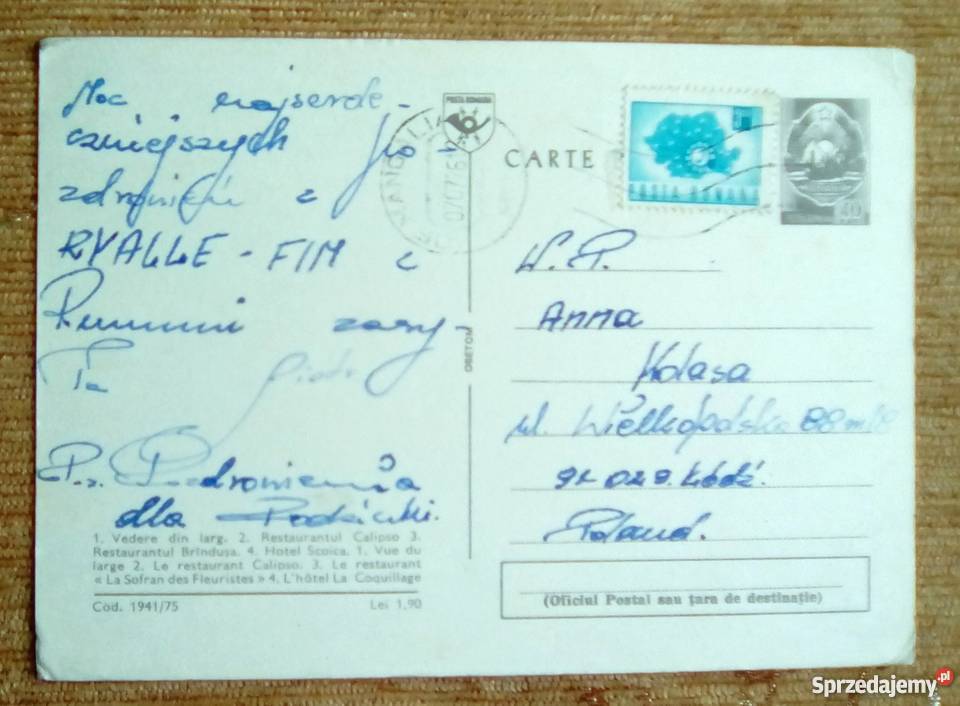 Moc najserde-
czniejszych po-
zdrowień z
RYALLE - FIM z
Rumunii zasy-
ła Piotr
P.s. Pozdrowienia
dla Rodzinki.
1. Vedere din larg. 2. Restaurantul Calipso 3.
Restaurantul Brîndușa. 4. Hotel Scoica. 1. Vue du
large 2. Le restaurant Calipso. 3. Le restaurant
« La Sofran des Fleuristes » 4. L'hôtel La Coquillage
Cod. 1941/75 Lei 1,90
POȘTA ROMÂNĂ
CARTE
POSTA ROMANA
40
W.P.
Anna
Kolasa
ul. Wielkopolska
91 029. Łódź.
Poland.
(Oficiul Poștal sau țara de destinație)
Sprzedajemy.pl